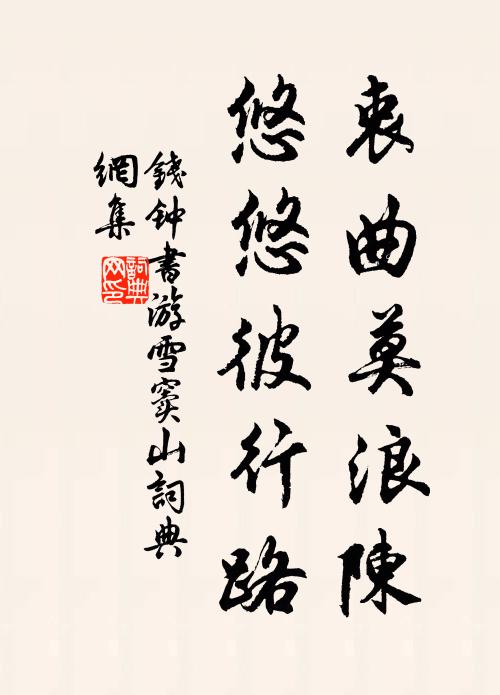 衷曲莫浪陳
悠悠彼行路
錢钟書游雪窦山詞典
網集
詞典網印